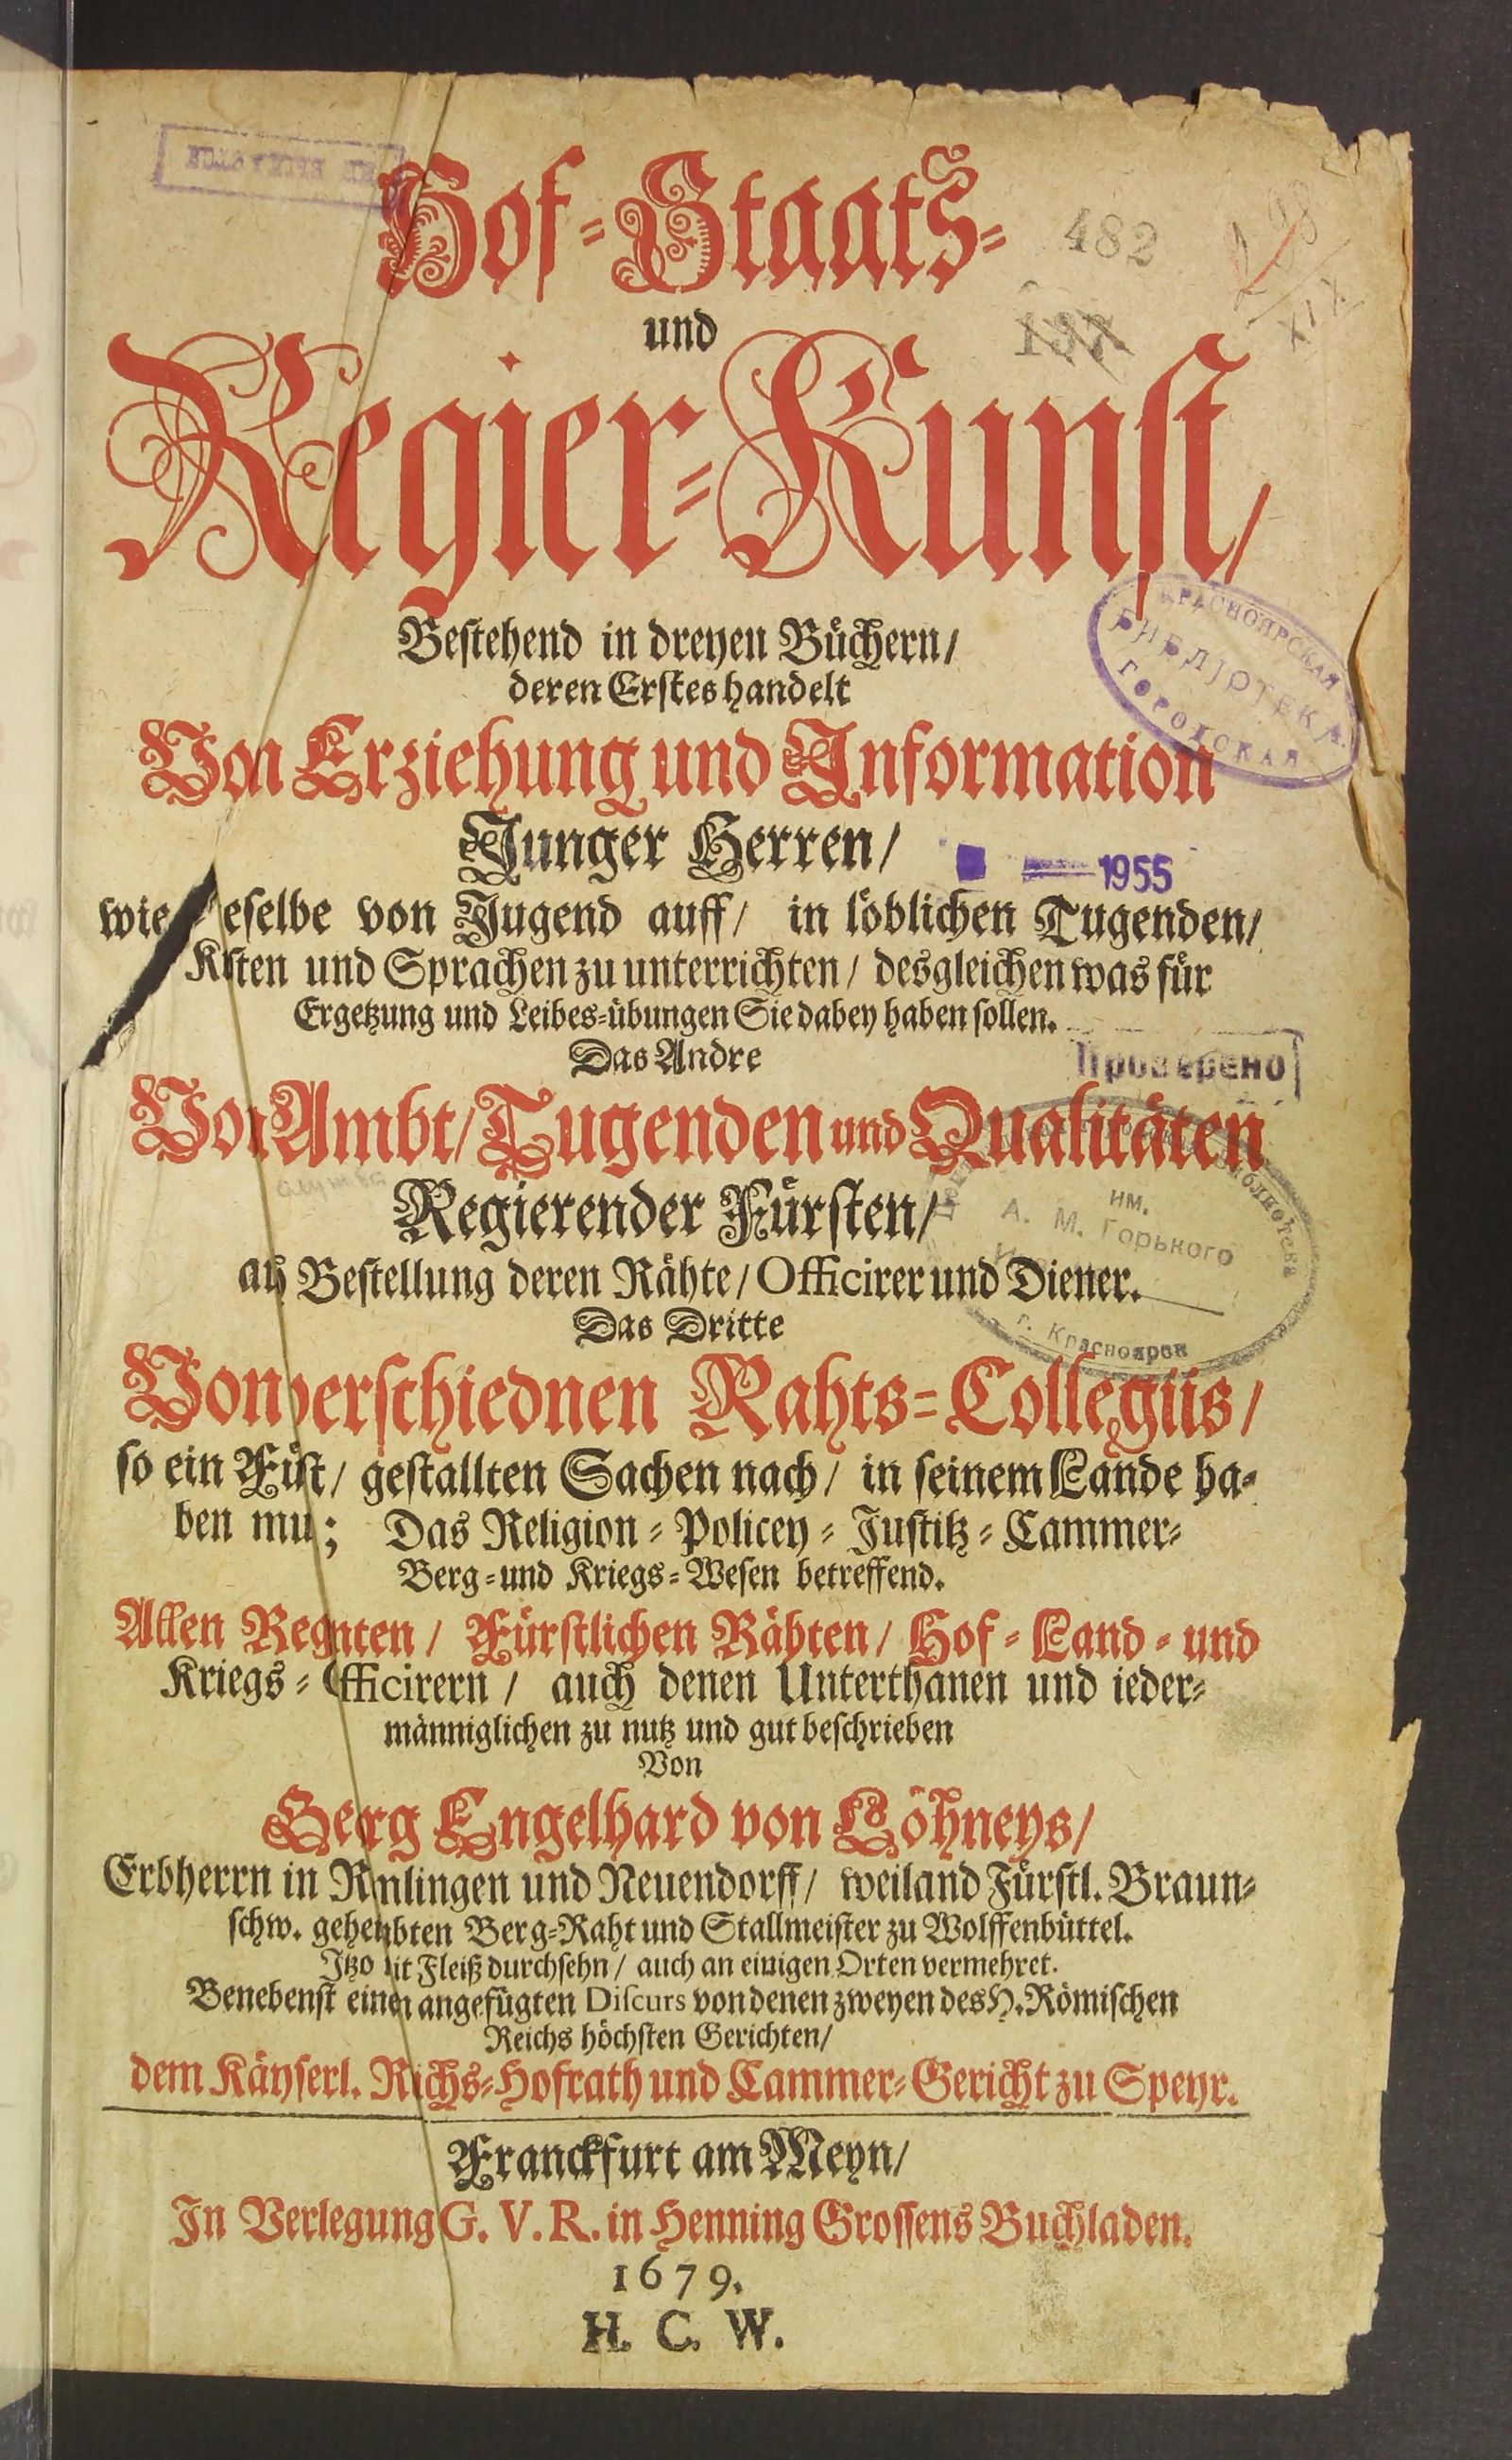 Hof-Staats-
482
und
137
Regier-Kunst/
КРАСНОЯРСКАЯ
БИБЛІОТЕКА
ГОРОДСКАЯ
Bestehend in dreyen Büchern/
deren Erstes handelt
Von Erziehung und Information
Junger Herren/
1955
wie eselbe von Jugend auff/ in löblichen Tugenden/
und Sprachen zu unterrichten/ desgleichen was für
Ergetzung und Leibes-übungen Sie dabey haben sollen.
Das Andre
Проверено
Von Ambt/ Tugenden und Qualitäten
Regierender Fürsten/
им.
А. М. Горького
Bestellung deren Rähte/ Officirer und Diener.
Das Dritte
г. Красноярск
Von verschiednen Rahts-Collegiis/
so ein Füst/ gestallten Sachen nach/ in seinem Lande ha-
ben mu; Das Religion-Policey-Justitz-Cammer-
Berg-und Kriegs-Wesen betreffend.
Allen Regnten/ Fürstlichen Rähten/ Hof-Land-und
Kriegs-Officirern/ auch denen Unterthanen und ieder-
männiglichen zu nutz und gut beschrieben
Von
Gerg Engelhard von Löhneys/
Erbherrn in Rmlingen und Neuendorff/ weiland Fürstl. Braun-
schw. gehembten Berg-Raht und Stallmeister zu Wolffenbüttel.
Itzo mit Fleiß durchsehn/ auch an einigen Orten vermehret.
Benebenst einen angefügten Discurs von denen zweyen des H. Römischen
Reichs höchsten Gerichten/
dem Käyserl. Richs-Hofrath und Cammer-Gericht zu Speyr.
Franckfurt am Meyn/
In Verlegung G. V. R. in Henning Grossens Buchladen.
1679.
H. C. W.